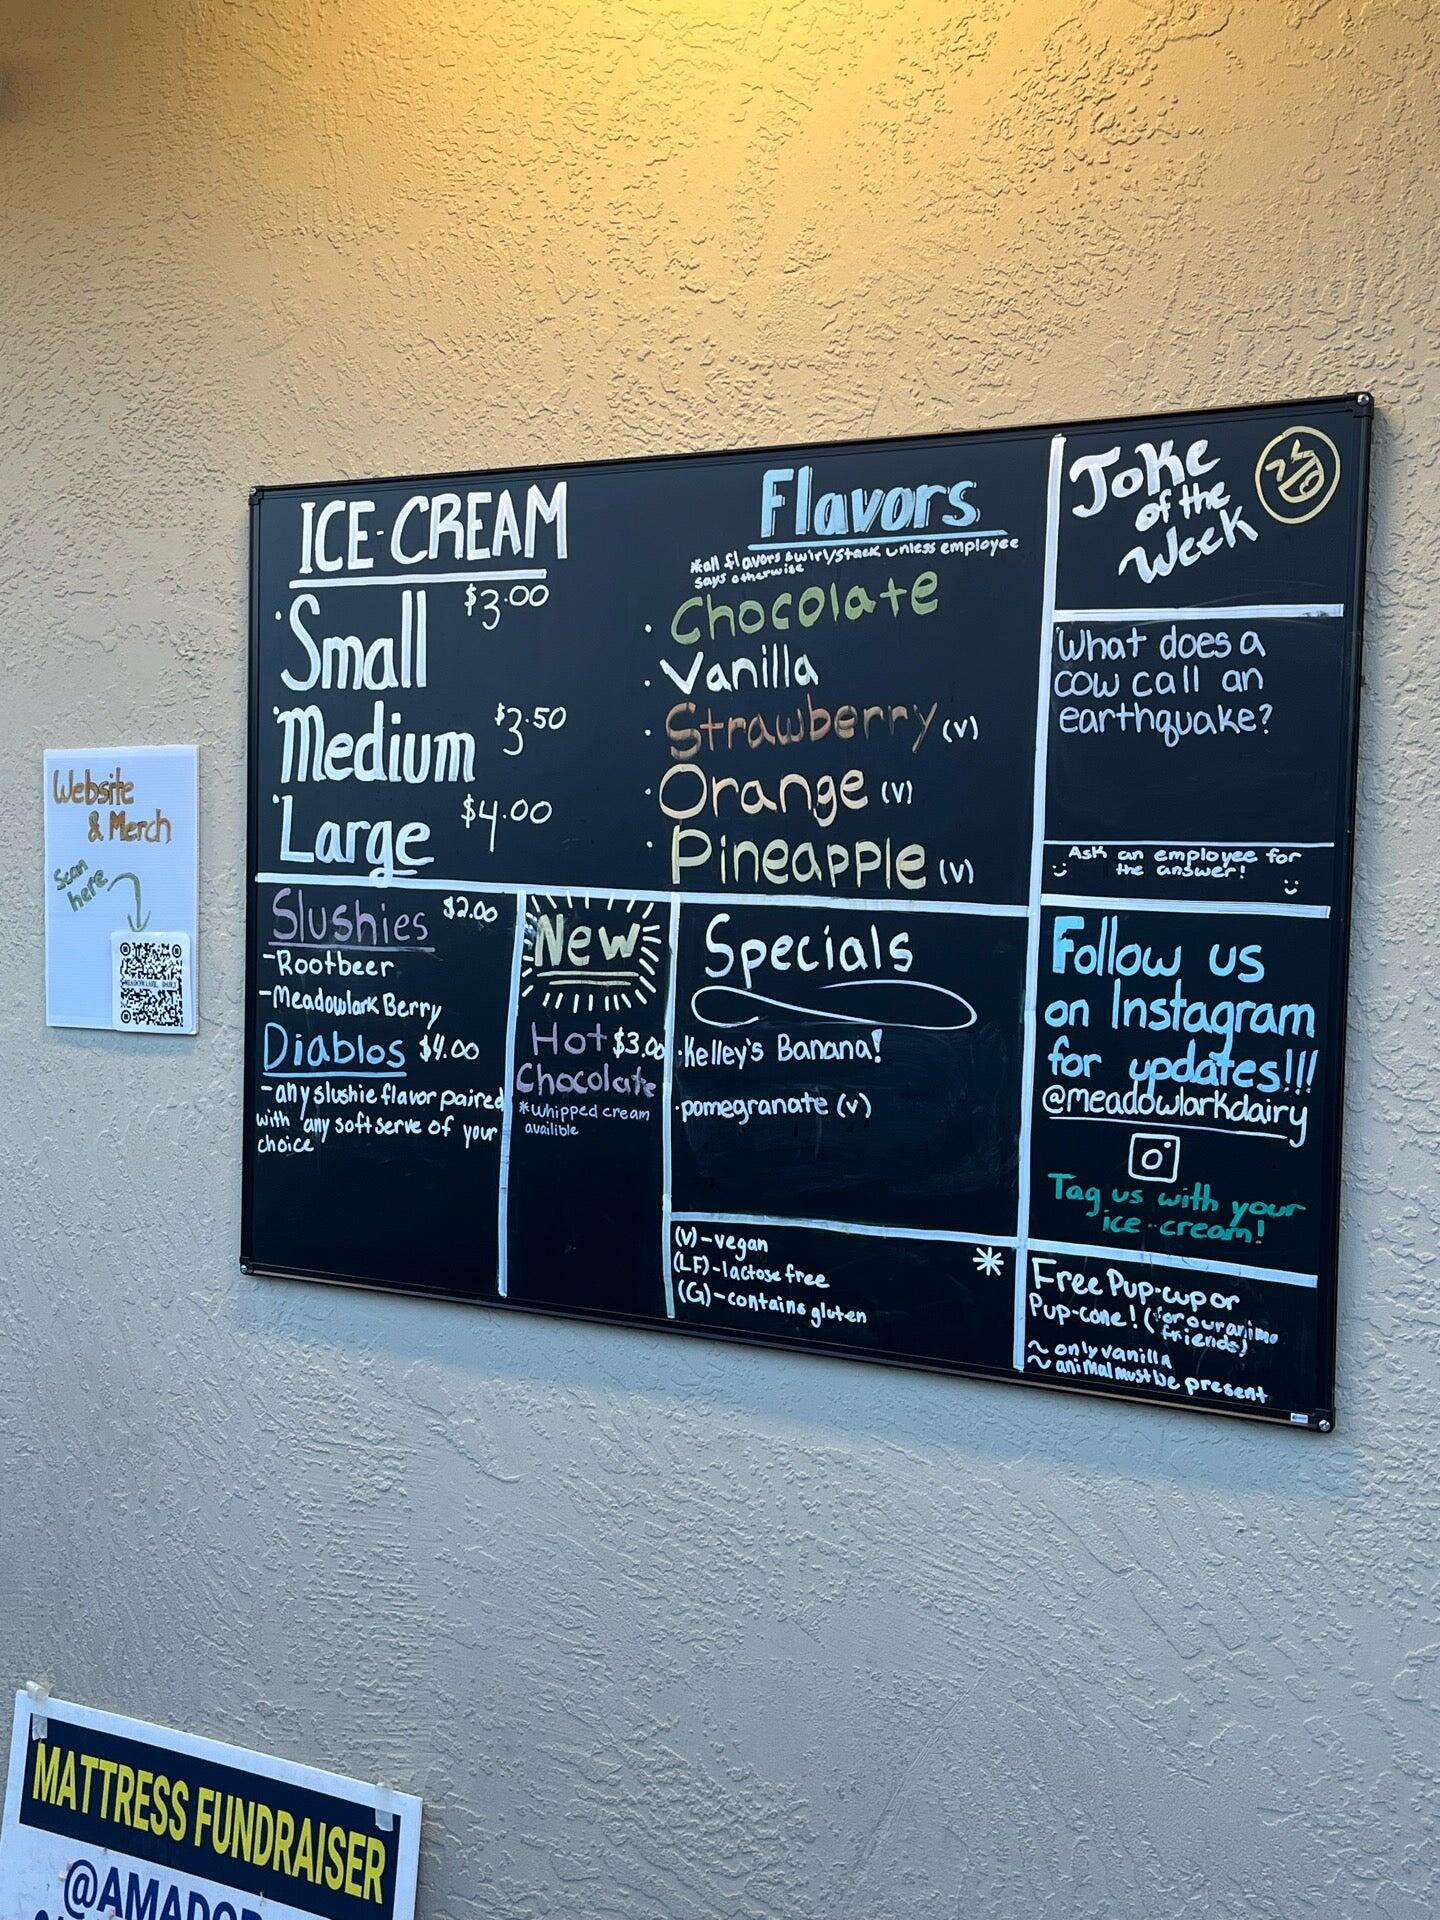 ICE-CREAM
· Small $3.00
· Medium $3.50
· Large $4.00
Flavors
*all flavors swirl/stack unless employee
says otherwise
· Chocolate
· Vanilla
· Strawberry (v)
· Orange (v)
· Pineapple (v)
Joke
of the
Week
What does a
cow call an
earthquake?
Ask an employee for
the answer!
Slushies $2.00
-Rootbeer
-Meadowlark Berry
Diablos $4.00
-any slushie flavor paired
with any soft serve of your
choice
New
Hot $3.00
Chocolate
*whipped cream
availible
Specials
·Kelley's Banana!
·pomegranate (v)
(v)-vegan
(LF)-lactose free
(G)-contains gluten
*
Follow us
on Instagram
for updates!!!
@meadowlarkdairy
Tag us with your
ice-cream!
Free Pup-cup or
Pup-cone! (for our
friends)
~ only vanilla
~ animal must be present
Website
& Merch
Scan
here
MEADOWLARK DAIRY
MATTRESS FUNDRAISER